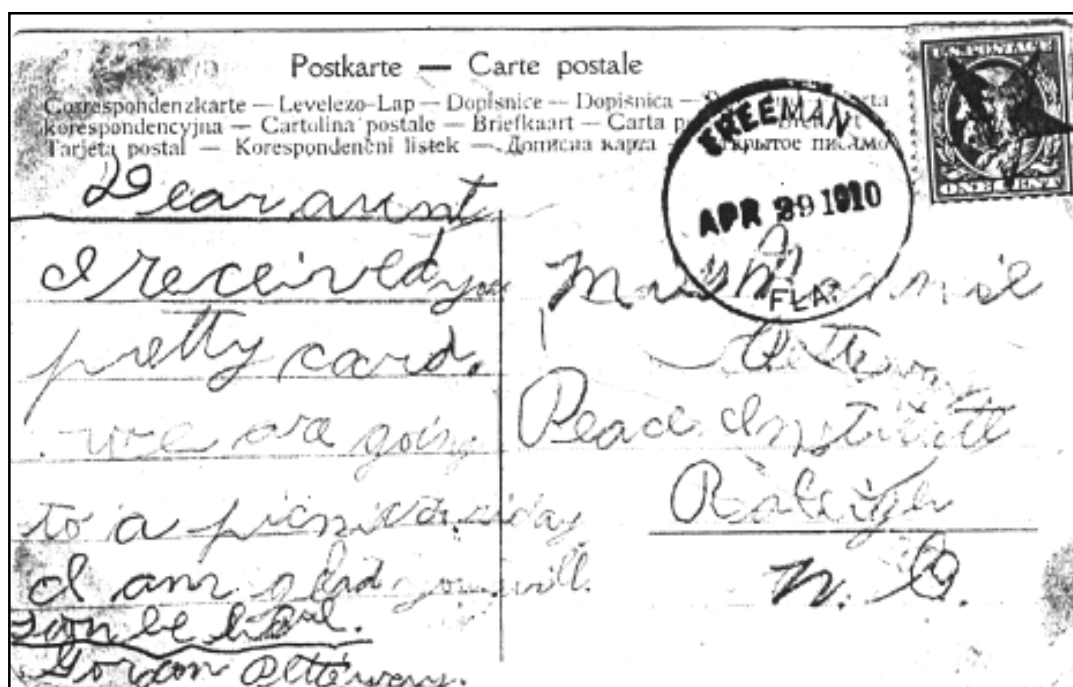 Postkarte — Carte postale
Correspondenzkarte — Levelezo-Lap — Dopisnice — Dopišnica —
korespondencyjna — Cartolina postale — Briefkaart — Carta
Tarjeta postal — Korespondenčni listek — Дописна карта — Открытое письмо
U.S. POSTAGE
ONE CENT
FREEMAN
APR 29 1910
FLA.
Dear aunt
I received you
pretty card.
we are going
to a picnic
I am glad you will
soon be
Gordon Petteway.
Miss Mamie
Petteway
Peace Institute
Raleigh
N. C.